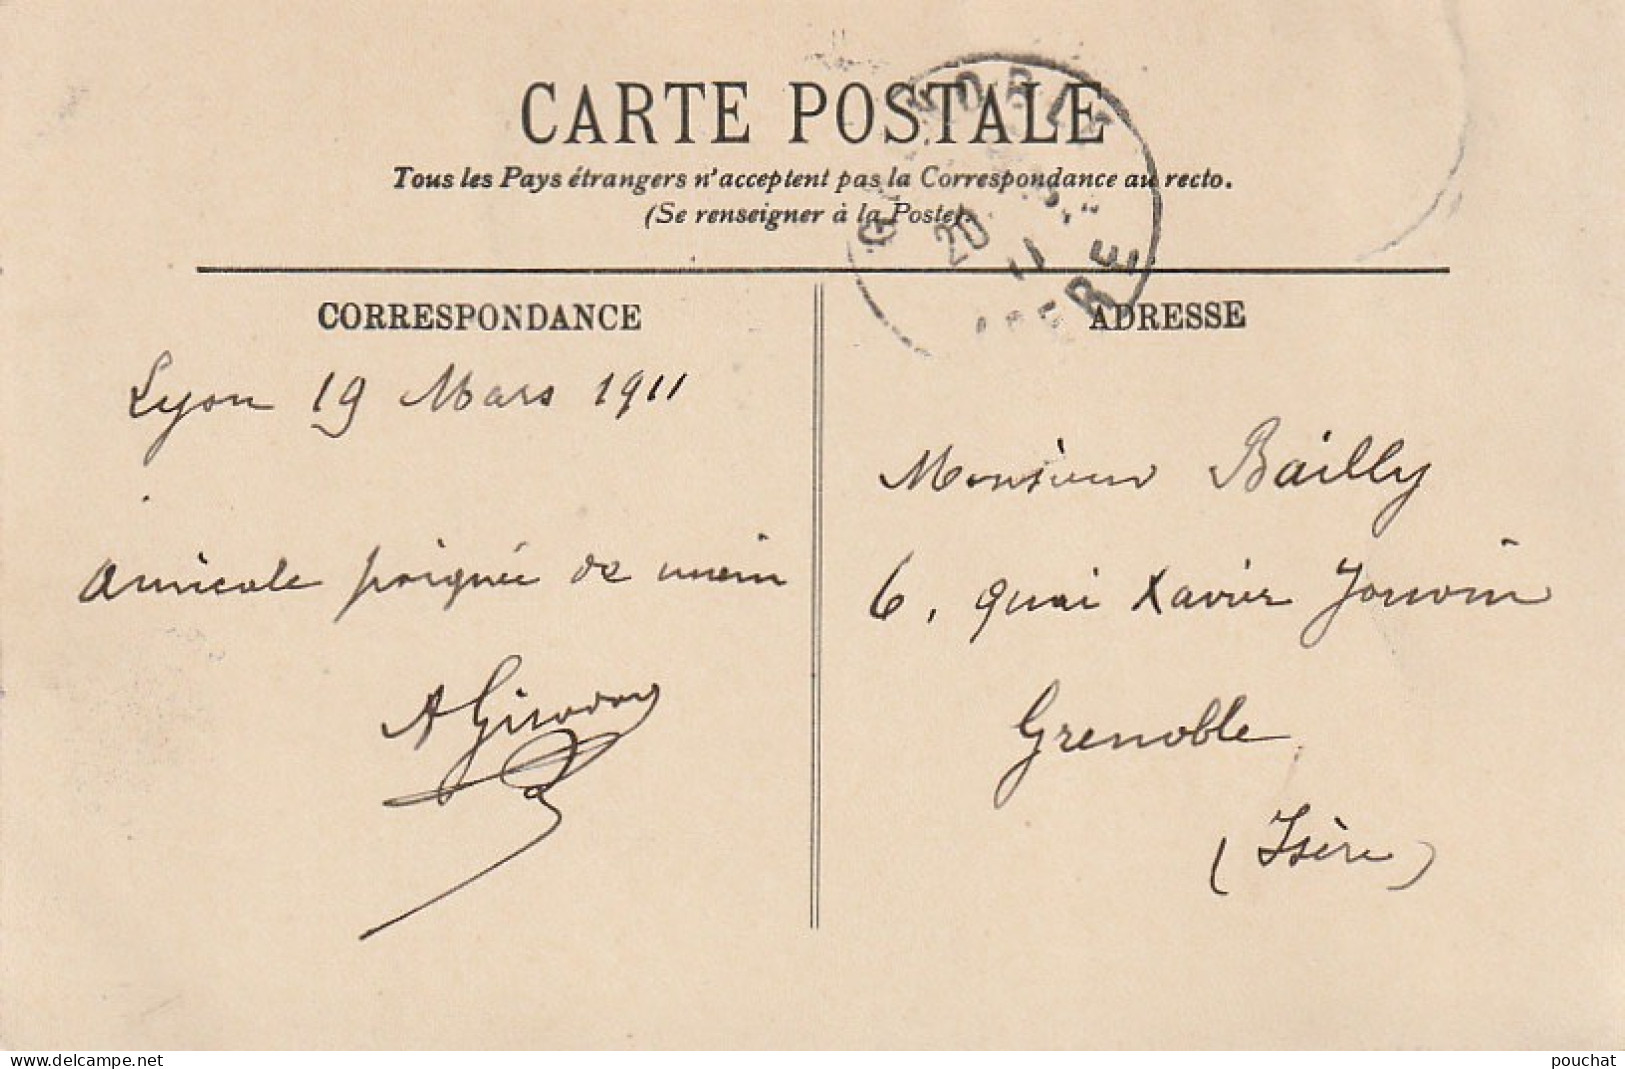 CARTE POSTALE
Tous les Pays étrangers n'acceptent pas la Correspondance au recto.
(Se renseigner à la Poste).
20
11
CORRESPONDANCE
Lyon 19 Mars 1911
Amicale poignée de main
ADRESSE
Monsieur Bailly
6, quai Xavier Jouvin
Grenoble
(Isère)
www.delcampe.net
pouchat